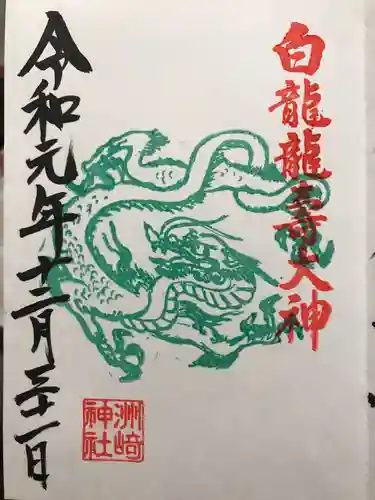 白龍龍壽大神
令和元年十二月三十一日
洲崎神社